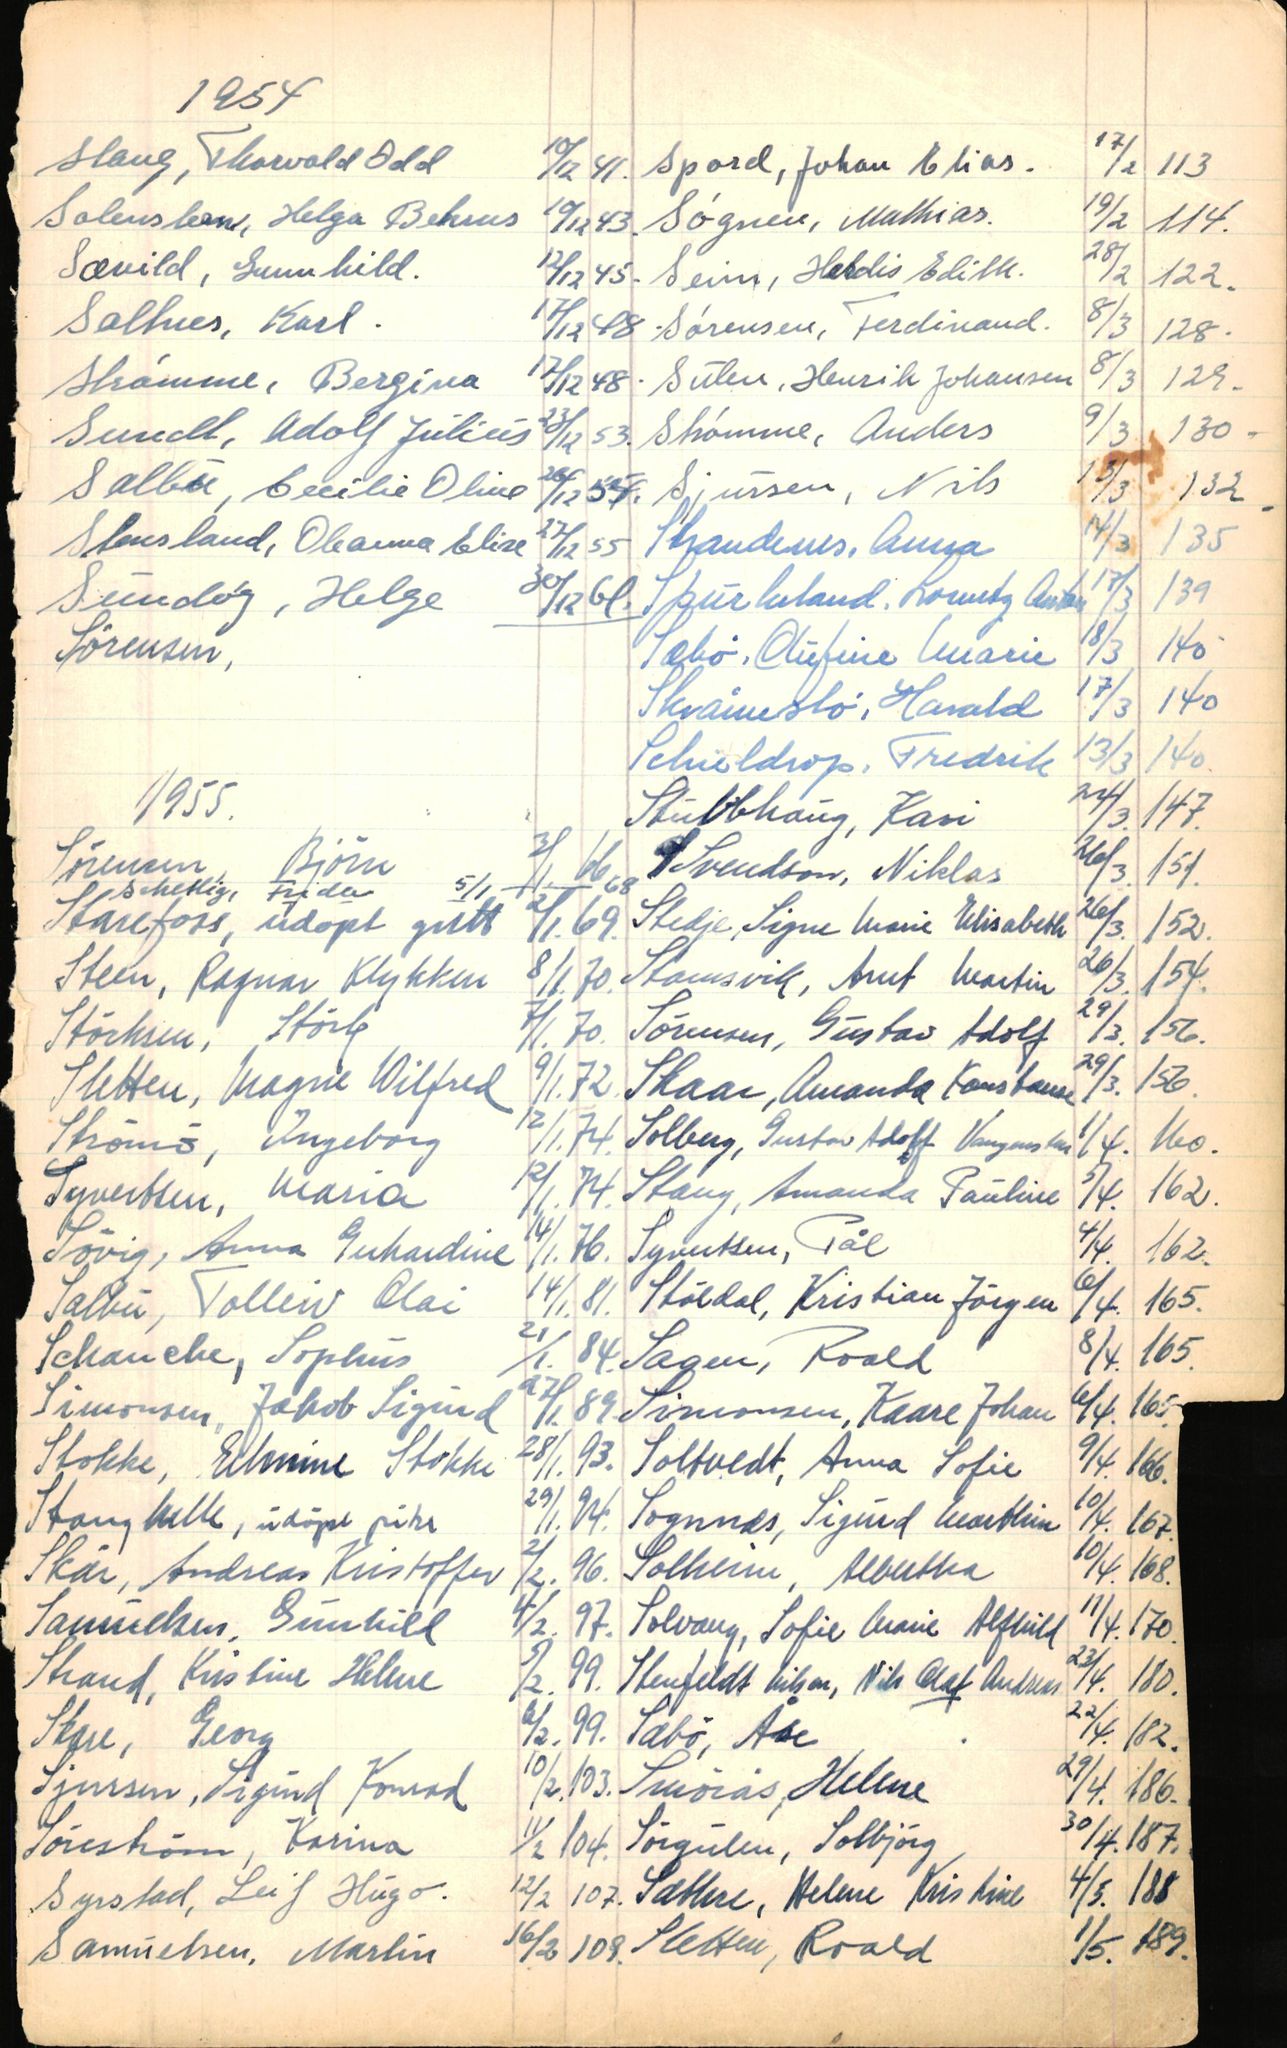 1954
Stang, Thorvald Odd 10/12 41.
Helga Behrens 10/12 43.
Sævild, Gunnhild. 12/12 45.
Salhus, Karl. 17/12 48.
Strømme, Bergina 17/12 48.
Sundt, Adolf Julius 23/12 53.
Salbu, Cecilie Oline 26/12 54.
Stensland, Oleanna Elise 27/12 55
Sundøy, Helge 30/12 61.
Sörensen,
1955.
Sörensen, Björn 3/1 66
Schetlig, Frida 5/1 68
Starefoss, udöpt gutt 2/1. 69.
Steen, Ragnar Klykken 8/1. 70.
Störksen, Störk 7/1. 70.
Sletten, Magne Wilfred 9/1. 72.
Strömö, Ingeborg 12/1. 74.
Syvertsen, Maria 12/1. 74.
Sövig, Anna Gerhardine 14/1. 76.
Salbu, Tolleiv Olai 14/1. 81.
Schanche, Sophus 21/1. 84.
Simonsen, Jakob Sigurd 27/1. 89.
Stokke, Elmine Stokke 28/1. 93.
Stang udöpt pike 29/1. 94.
Skår, Andreas Kristoffer 2/2. 96.
Samuelsen, Gunhild 4/2. 97.
Strand, Kristine Helene 5/2. 99.
Skare, Georg 6/2. 99.
Sjursen, Sigurd Konrad 10/2. 103.
Söreström, Karina 11/2 104.
Syrstad, Leif Hugo. 12/2 107.
Samuelsen, Martin 16/2 109.
Spord, Johan Elias. 17/2 113
Søgnen, Mathias. 19/2 114.
Seim, Herdis Edith. 28/2 122.
Sørensen, Ferdinand. 8/3 128.
Sulen, Henrik Johansen 8/3 129.
Strømme, Anders 9/3 130
Sjursen, Nils 13/3 132
Strandenes, Anna 14/3 135
Spurkeland, Lorentz Anton 17/3 139
Sæbø, Olufine Marie 18/3 140
Skråmestø, Harald 17/3 140
Schieldrop, Fredrik 13/3 140.
Stubbhaug, Kari 24/3. 147.
Svendson, Niklas 26/3. 151.
Stedje, Signe Marie Elisabeth 26/3. 152.
Stamsvik, Arnt Martin 26/3. 154.
Sörensen, Gustav Adolf 29/3. 156.
Skaar, Amanda Konstanse 29/3. 156.
Solberg, Gustav Adolf 1/4. 160.
Stang, Amanda Pauline 5/4. 162.
Syvertsen, Pål 4/4. 162.
Stöldal, Kristian Jörgen 6/4. 165.
Sagen, Roald 8/4. 165.
Simonsen, Kaare Johan 6/4. 165.
Soltvedt, Anna Sofie 9/4. 166.
Sognnæs, Sigurd Marthin 10/4. 167.
Solheim, Albertha 10/4. 168.
Solvang, Sofie Marie Alfhild 11/4. 170.
Stenfeldt Nilsen, Nils Olaf Andreas 23/4. 180.
Sæbö, Åse 22/4. 182.
Smörås, Helene 29/4. 186.
Sörgulen, Solbjörg 30/4. 187.
Sæthre, Helene Kristine 4/5. 188
Sletten, Roald 1/5. 189.